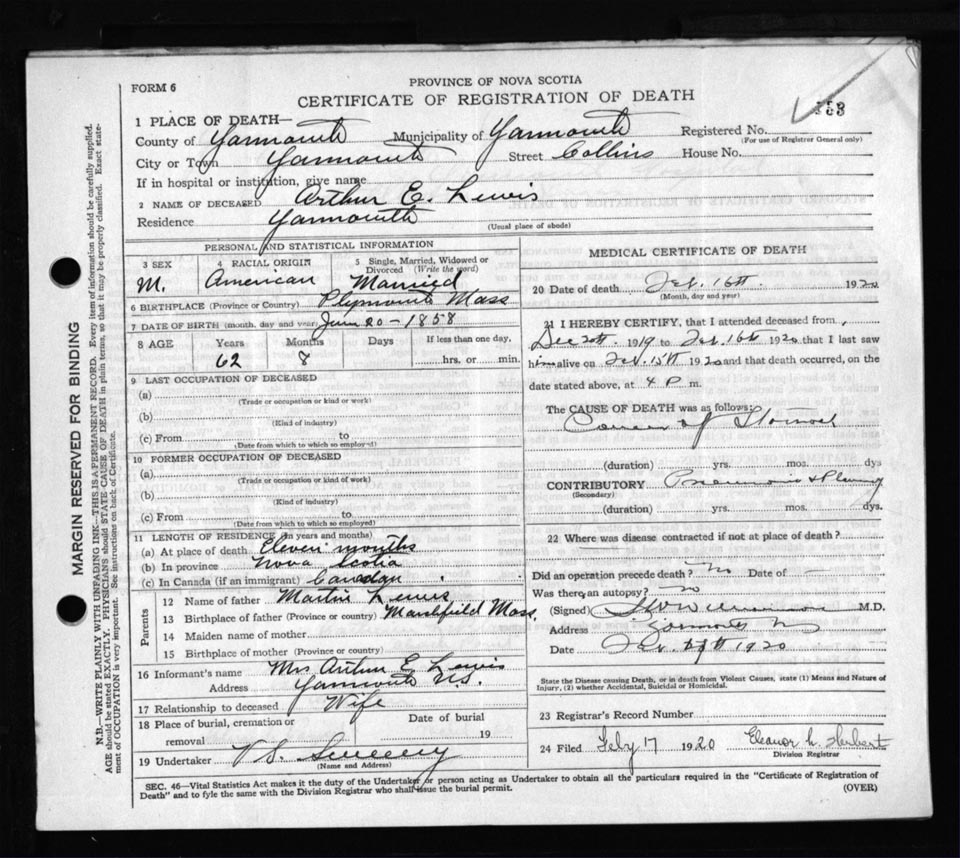 PROVINCE OF NOVA SCOTIA
FORM 6
CERTIFICATE OF REGISTRATION OF DEATH
1 PLACE OF DEATH—
County of Yarmouth Municipality of Yarmouth Registered No. 153
(For use of Registrar General only)
City or Town Yarmouth Street Collins House No.
If in hospital or institution, give name
2 NAME OF DECEASED Arthur E. Lewis
Residence Yarmouth
(Usual place of abode)
PERSONAL AND STATISTICAL INFORMATION
3 SEX 4 RACIAL ORIGIN 5 Single, Married, Widowed or Divorced (Write the word)
M. American Married
6 BIRTHPLACE (Province or Country) Plymouth Mass
7 DATE OF BIRTH (month, day and year) June 20 - 1858
8 AGE Years Months Days If less than one day,
62 8 hrs. or min.
9 LAST OCCUPATION OF DECEASED
(a)
(Trade or occupation or kind or work)
(b)
(Kind of industry)
(c) From to
(Date from which to which so employed)
10 FORMER OCCUPATION OF DECEASED
(a)
(Trade or occupation or kind of work)
(b)
(Kind of industry)
(c) From to
(Date from which to which so employed)
11 LENGTH OF RESIDENCE (in years and months)
(a) At place of death Eleven months
(b) In province Nova Scotia
(c) In Canada (if an immigrant) Canadan
Parents
12 Name of father Martin Lewis
13 Birthplace of father (Province or country) Marshfield Mass.
14 Maiden name of mother
15 Birthplace of mother (Province or country)
16 Informant's name Mrs Arthur E Lewis
Address Yarmouth N.S.
17 Relationship to deceased Wife
18 Place of burial, cremation or removal Date of burial 19
19 Undertaker V S. Sweeney
(Name and Address)
MEDICAL CERTIFICATE OF DEATH
20 Date of death Feb. 16th. 1920
(Month, day and year)
21 I HEREBY CERTIFY, that I attended deceased from
Dec 20th 1919 to Feb. 16th 1920 that I last saw
him alive on Feb. 15th 1920 and that death occurred, on the
date stated above, at 4 P. m.
The CAUSE OF DEATH was as follows:
Cancer of Stomach
(duration) yrs. mos. dys
CONTRIBUTORY Pneumonia & Pleurisy
(Secondary)
(duration) yrs. mos. dys.
22 Where was disease contracted if not at place of death?
Did an operation precede death? No Date of -
Was there an autopsy? no
(Signed) M.D.
Address Yarmouth NS
Date Feb. 1920
State the Disease causing Death, or in death from Violent Causes, state (1) Means and Nature of Injury, (2) whether Accidental, Suicidal or Homicidal.
23 Registrar's Record Number
24 Filed Feby 17 1920 Eleanor h. Herbert
Division Registrar
SEC. 46—Vital Statistics Act makes it the duty of the Undertaker or person acting as Undertaker to obtain all the particulars required in the "Certificate of Registration of
Death" and to fyle the same with the Division Registrar who shall issue the burial permit. (OVER)
MARGIN RESERVED FOR BINDING
N.B.—WRITE PLAINLY WITH UNFADING INK—THIS IS A PERMANENT RECORD. Every item of information should be carefully supplied.
AGE should be stated EXACTLY. PHYSICIANS should STATE CAUSE OF DEATH in plain terms, so that it may be properly classified. Exact statement of OCCUPATION is very important. See instructions on back of Certificate.